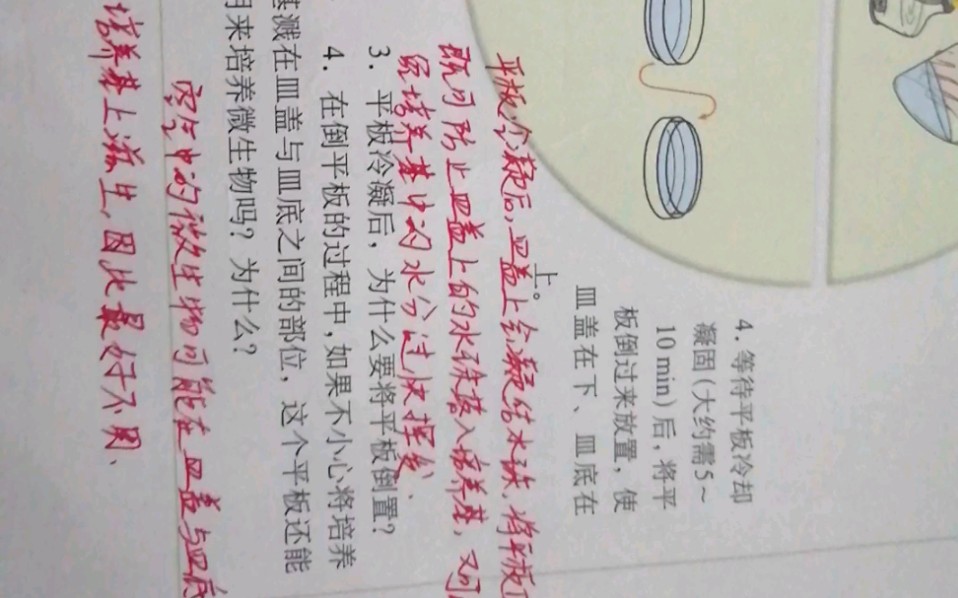 4. 等待平板冷却
凝固(大约需5~
10 min)后,将平
板倒过来放置,使
皿盖在下、皿底在
上。
平板冷凝后,皿盖上会凝结水珠,将平板
既可防止皿盖上的水珠落入培养基,又可
终培养基中的水分过快挥发、
3. 平板冷凝后,为什么要将平板倒置?
4. 在倒平板的过程中,如果不小心将培养
基溅在皿盖与皿底之间的部位,这个平板还能
用来培养微生物吗?为什么?
空气中的微生物可能在皿盖与皿底
培养基上滋生,因此最好不用、